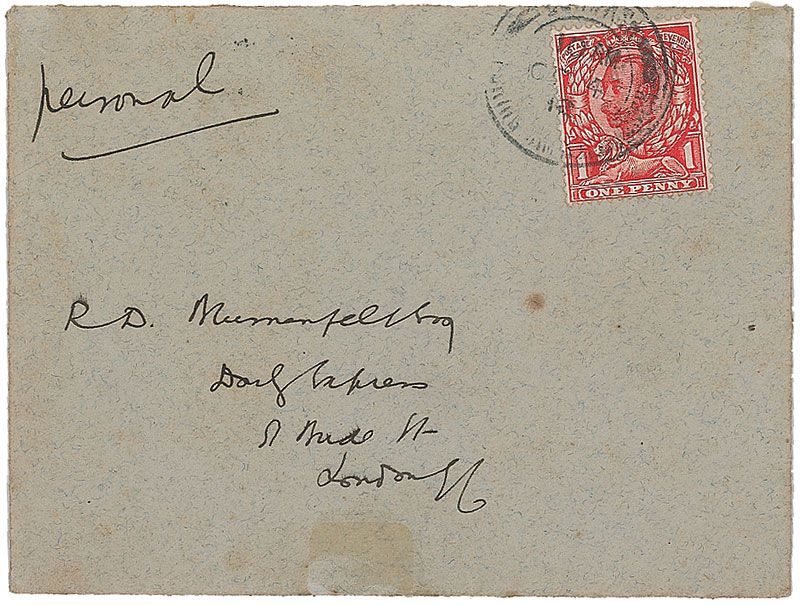 personal
POSTAGE REVENUE
1 1
ONE PENNY
R D. Blumenfeld Esq
Daily Express
St Bride St
London EC